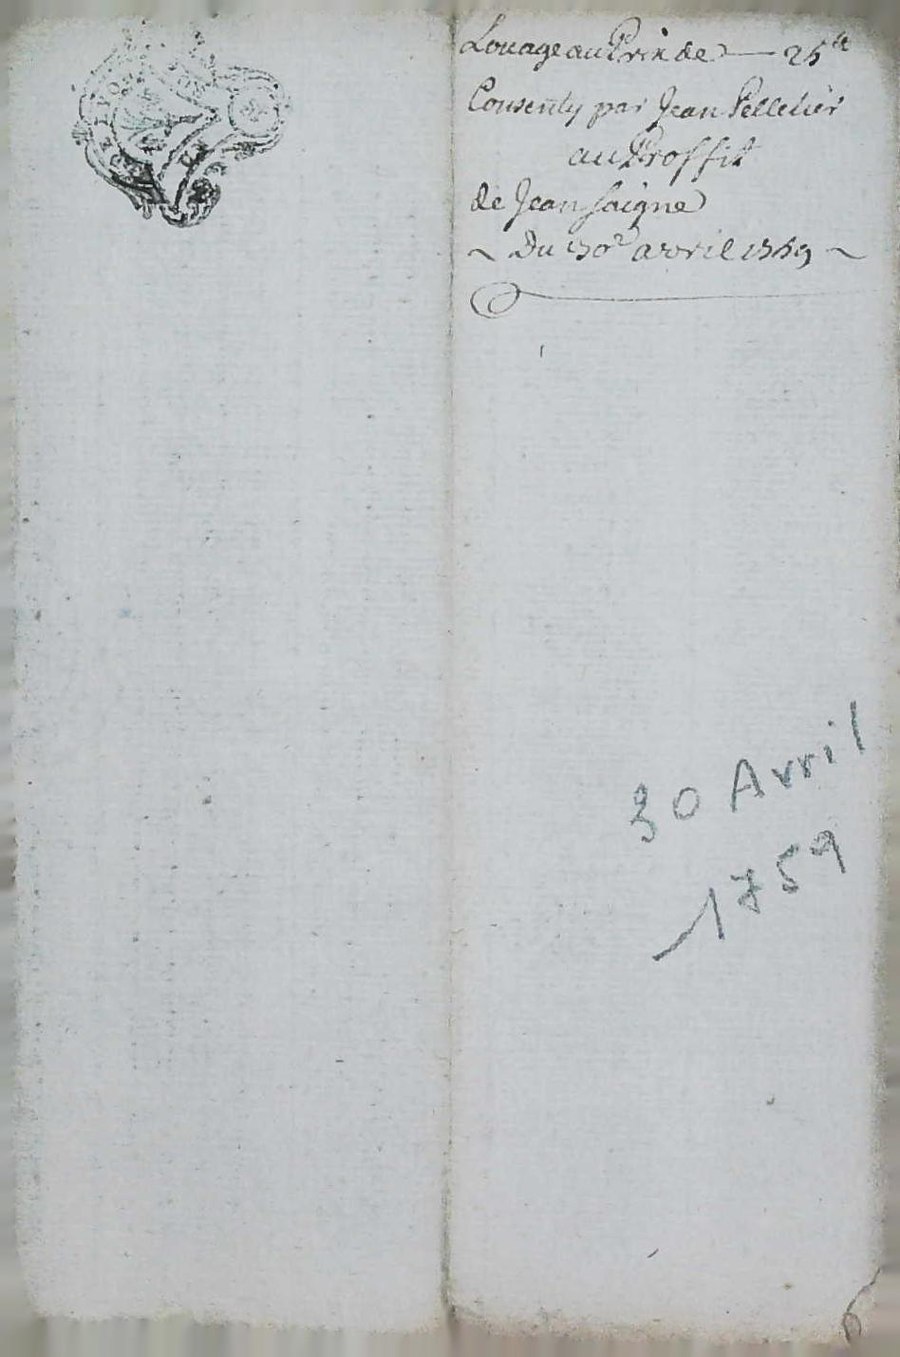 DE LYON
Louage au Prix de — 25 ₶
Consenty par Jean Pelletier
au Proffit
de Jean Saigne
~ Du 30e avril 1759 ~
30 Avril
1759